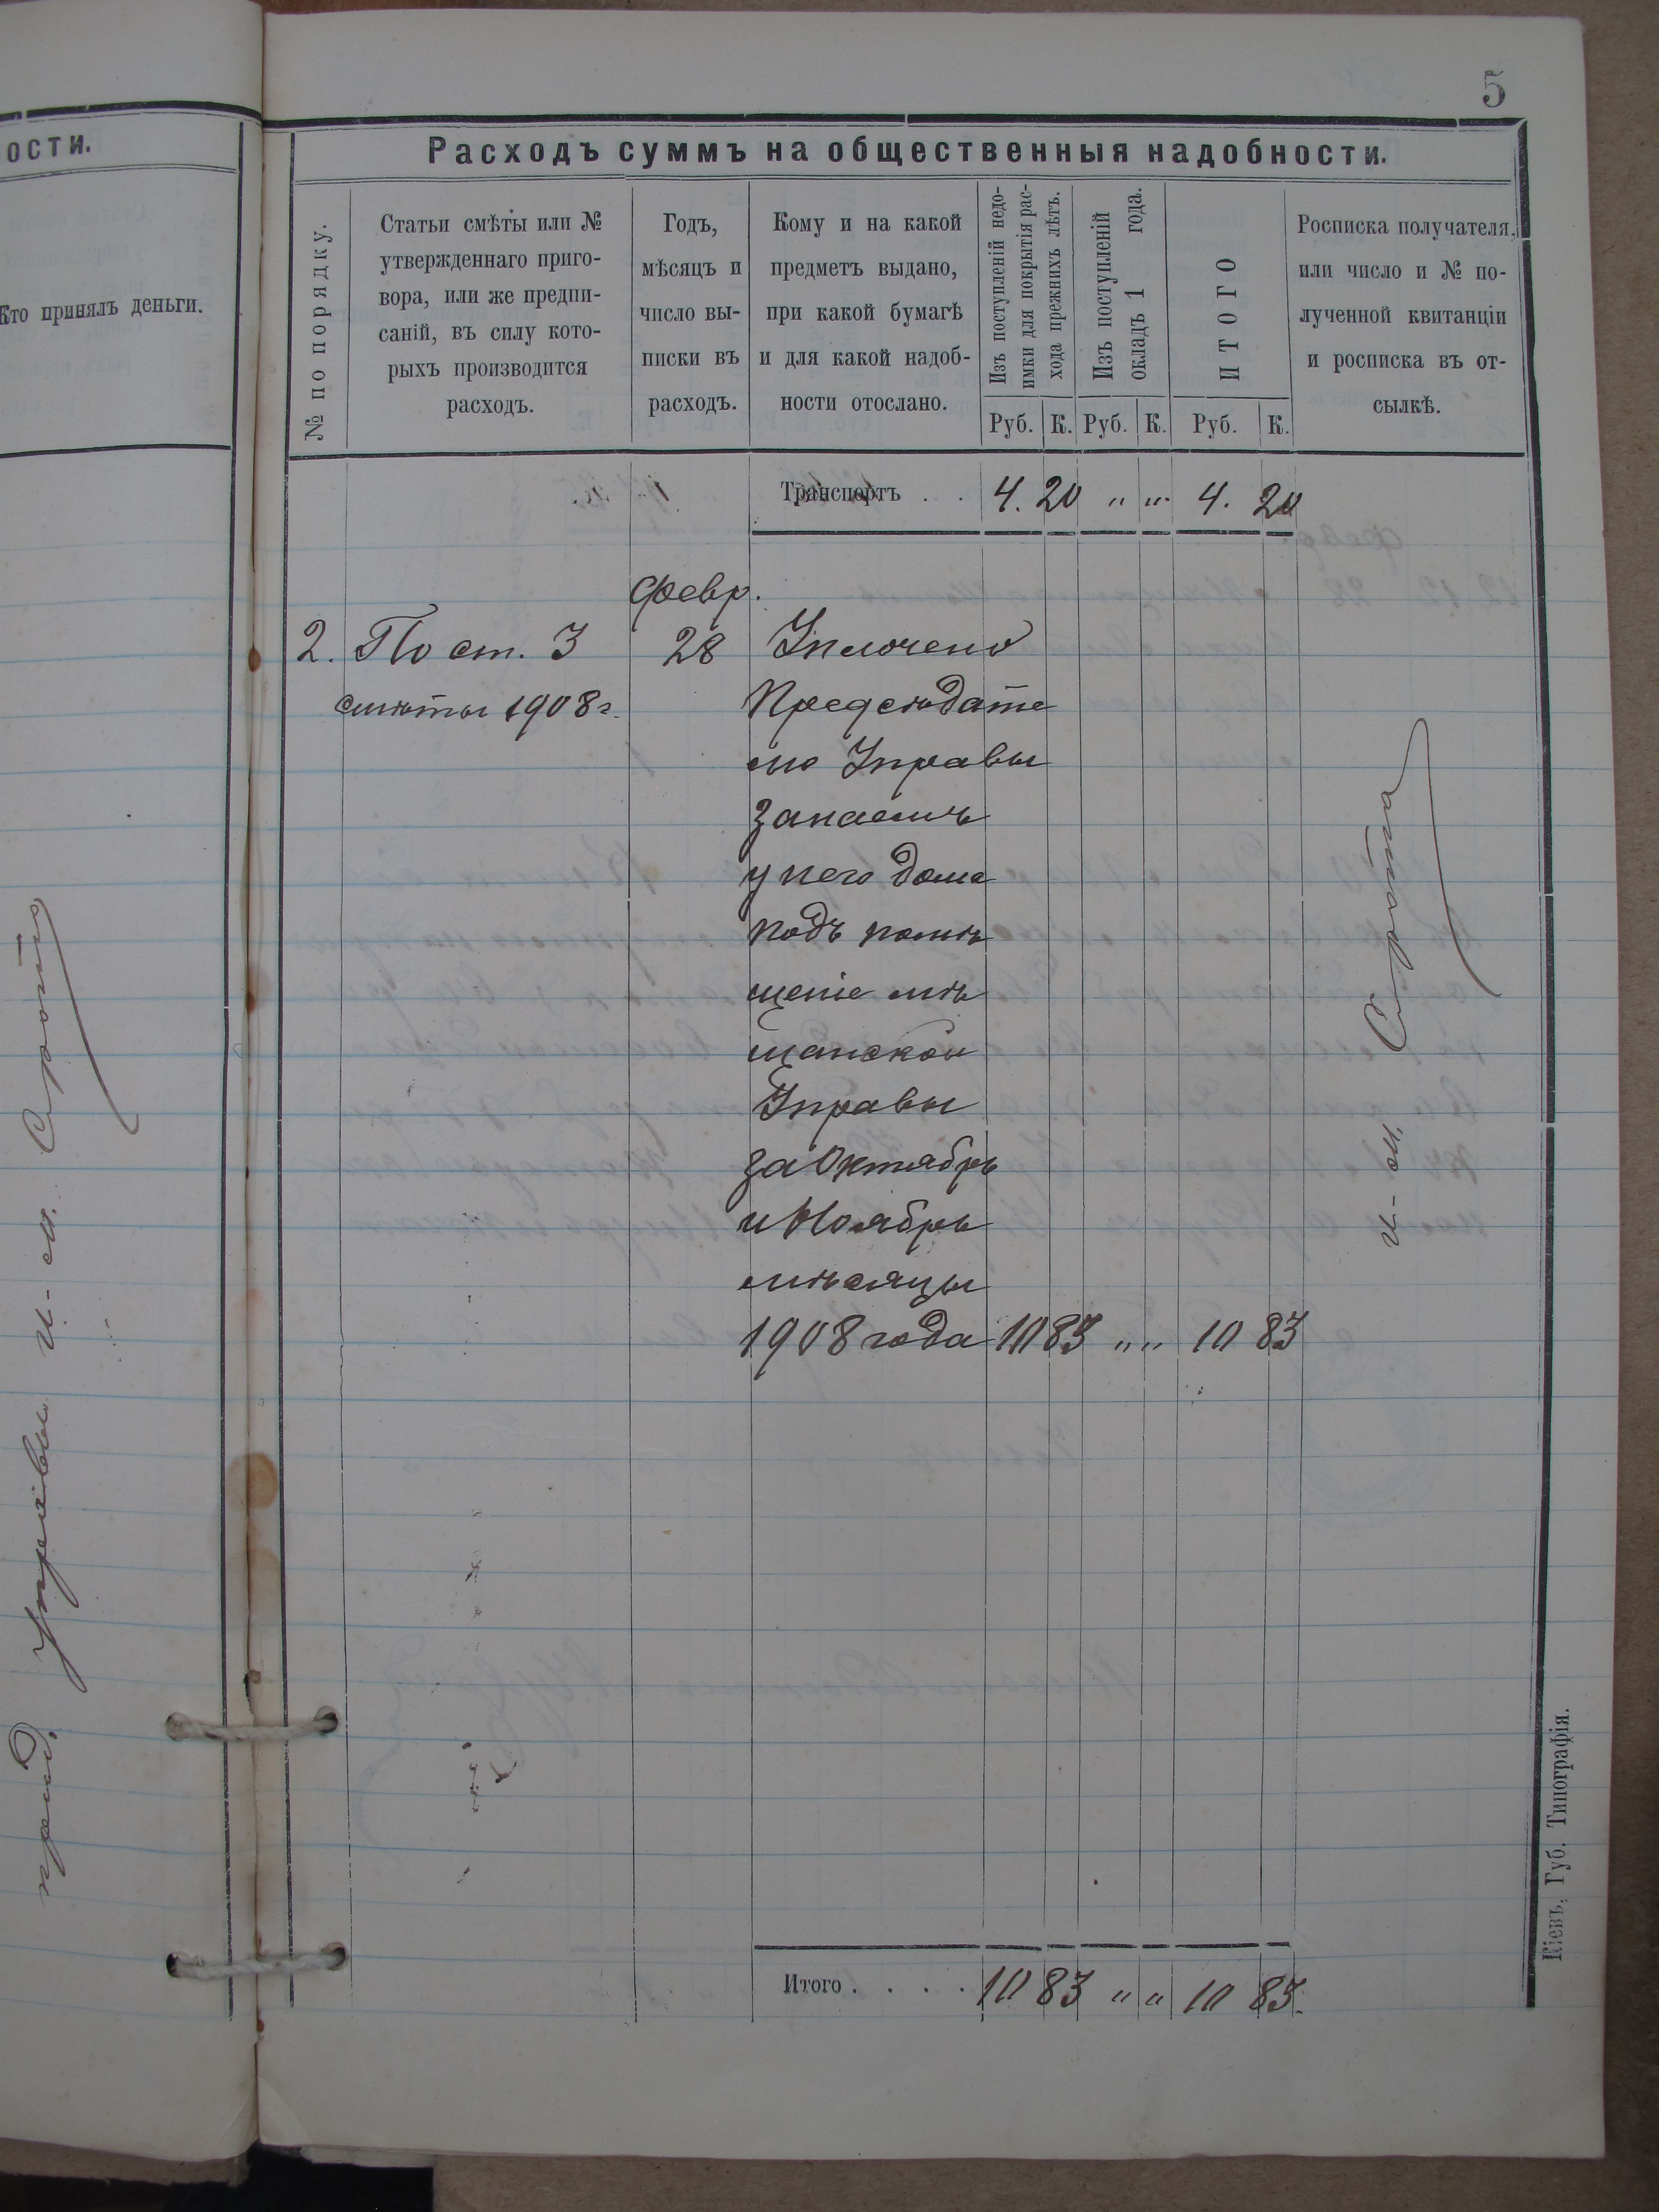 5
ости.
Кто принялъ деньги.
Расходъ суммъ на общественныя надобности.
№ по порядку.
Статьи смѣты или №
утвержденнаго приго-
вора, или же предпи-
саній, въ силу кото-
рыхъ производится
расходъ.
Годъ,
мѣсяцъ и
число вы-
писки въ
расходъ.
Кому и на какой
предметъ выдано,
при какой бумагѣ
и для какой надоб-
ности отослано.
Изъ поступленій недо-
имки для покрытія рас-
хода прежнихъ лѣтъ.
Изъ поступленій
окладъ 1 года.
ИТОГО
Росписка получателя,
или число и № по-
лученной квитанціи
и росписка въ от-
сылкѣ.
Руб. К. Руб. К. Руб. К.
Транспортъ . . 4. 20 „ „ 4. 20
Февр.
2. По ст. 3 28 Уплочено
смѣты 1908 г. Предсѣдате
лю Управы
за наемъ
у него дома
подъ помѣ
щеніе мѣ
щанской
Управы
за Октябрь
и Ноябрь
мѣсяцы
1908 года 10 83 „ „ 10 83
и - м. Сирота
Итого . . . . 10 83 „ „ 10 83.
Кіевъ, Губ. Типографія.
пред. управы и - м. Сирота